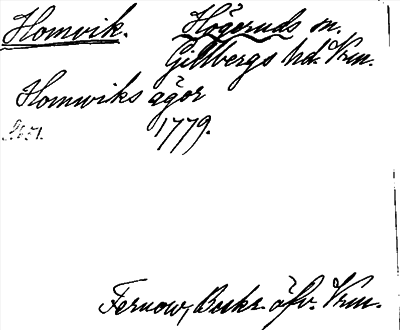 Homvik. Högeruds sn.
Gillbergs hd. Vrm.
Homwiks ägor
1779.
Fernow, Beskr. öfv. Vrm.